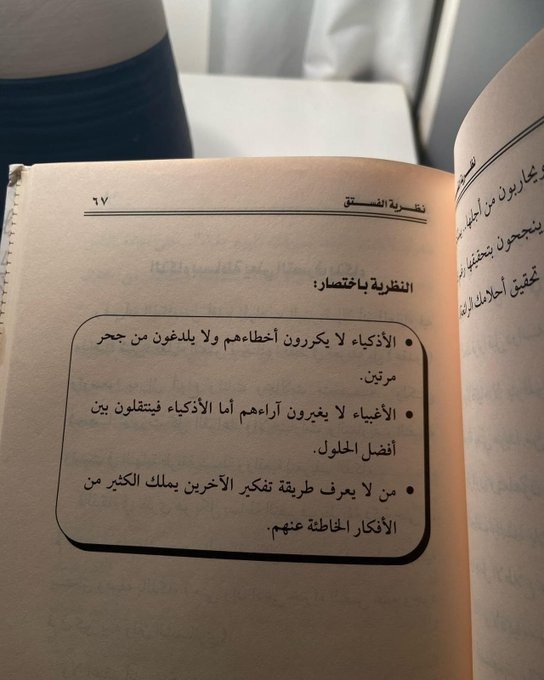 نظرية الفستق
٦٧
النظرية باختصار:
• الأذكياء لا يكررون أخطاءهم ولا يلدغون من جحر
مرتين.
• الأغبياء لا يغيرون آراءهم أما الأذكياء فينتقلون بين
أفضل الحلول.
• من لا يعرف طريقة تفكير الآخرين يملك الكثير من
الأفكار الخاطئة عنهم.
ويحاربون من أجلها..
ينجحون بتحقيقها
تحقيق أحلامك الرائعة